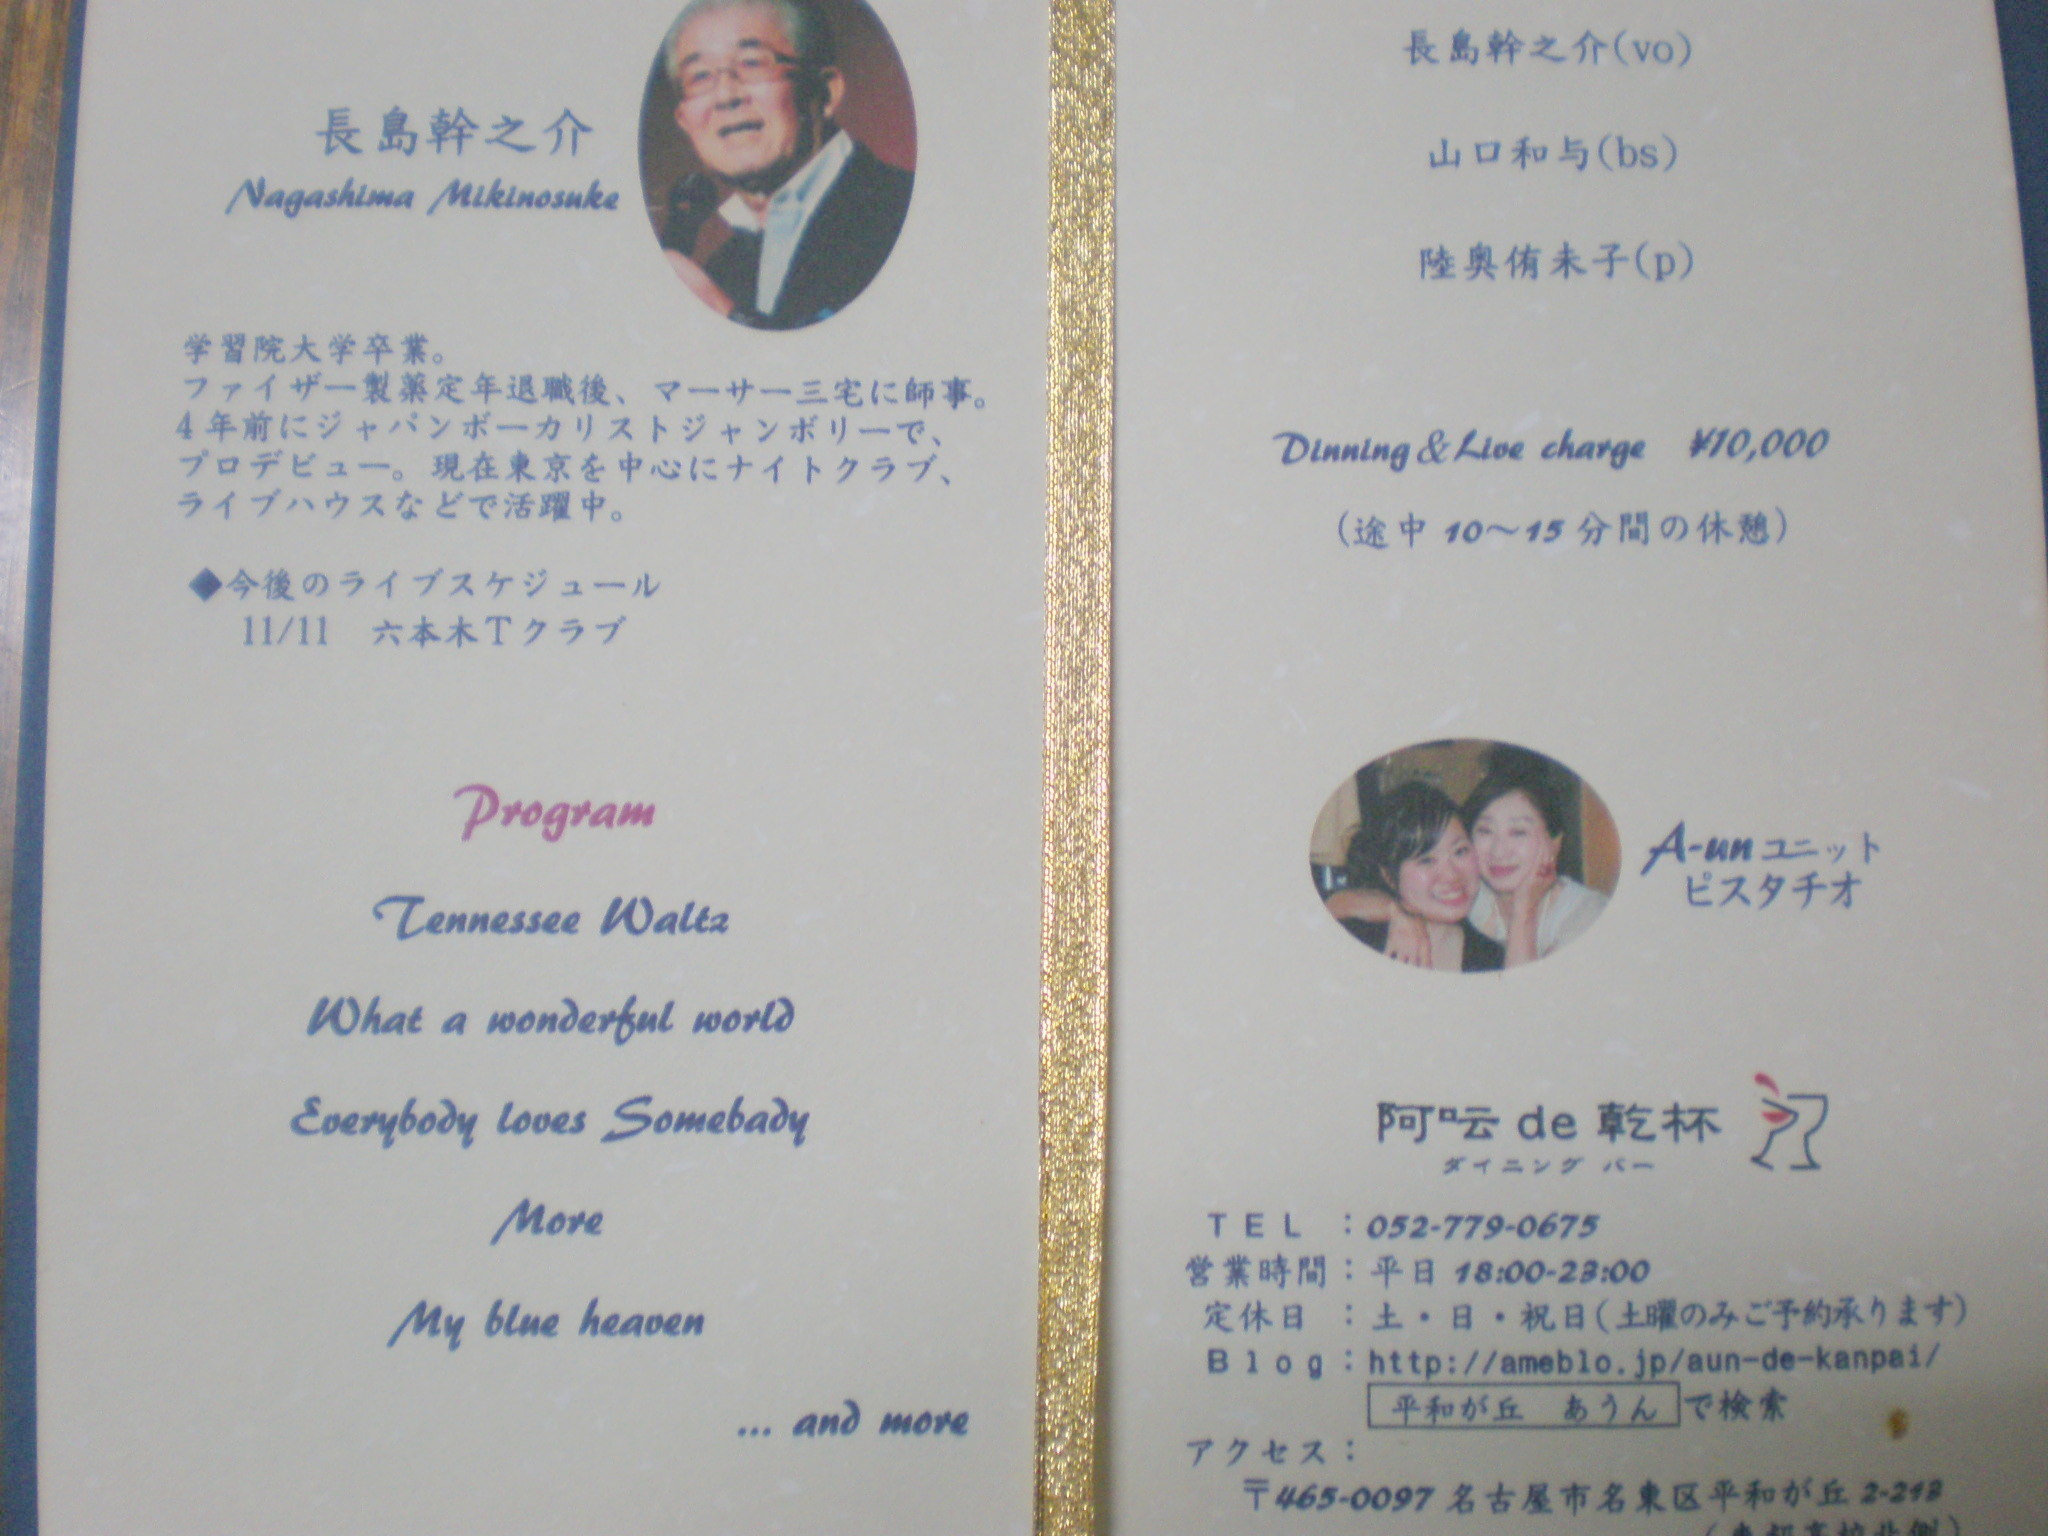 長島幹之介
Nagashima Mikinosuke
学習院大学卒業。
ファイザー製薬定年退職後、マーサー三宅に師事。
4年前にジャパンボーカリストジャンボリーで、
プロデビュー。現在東京を中心にナイトクラブ、
ライブハウスなどで活躍中。
◆今後のライブスケジュール
11/11 六本木Tクラブ
Program
Tennessee Waltz
What a wonderful world
Everybody loves Somebady
More
My blue heaven
... and more
長島幹之介(vo)
山口和与(bs)
陸奥侑未子(p)
Dinning&Live charge ¥10,000
(途中10〜15分間の休憩)
A-unユニット
ピスタチオ
阿吽de乾杯
ダイニング バー
TEL :052-779-0675
営業時間:平日18:00-23:00
定休日 :土・日・祝日(土曜のみご予約承ります)
Blog:http://ameblo.jp/aun-de-kanpai/
平和が丘 あうん で検索
アクセス:
〒465-0097 名古屋市名東区平和が丘2-213